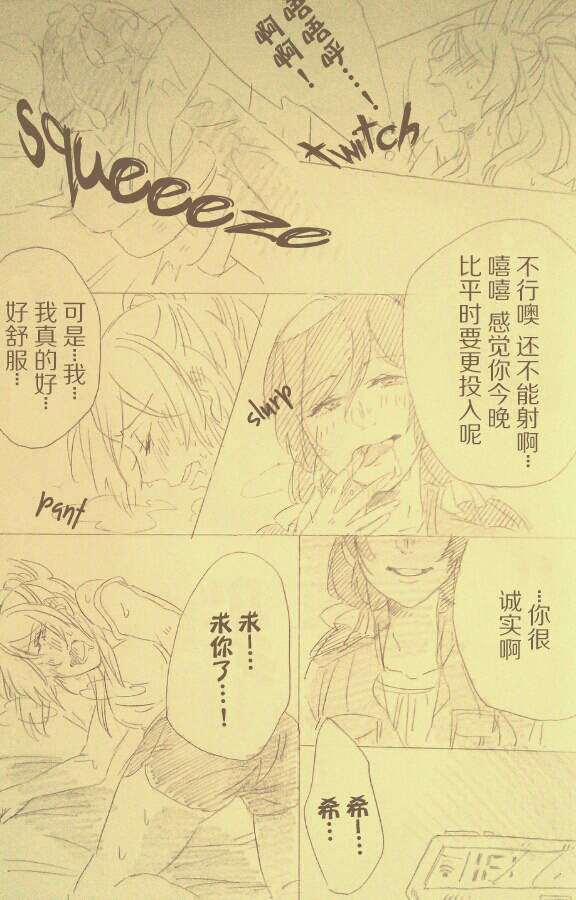 嗯嗯哼…!
啊啊!
twitch
squeeeze
不行噢 还不能射啊…
嘻嘻 感觉你今晚
比平时要更投入呢
slurp
可是…我…
我真的好…
好舒服…
pant
…你很
诚实啊
求—…
求你了…!
希—…
希…